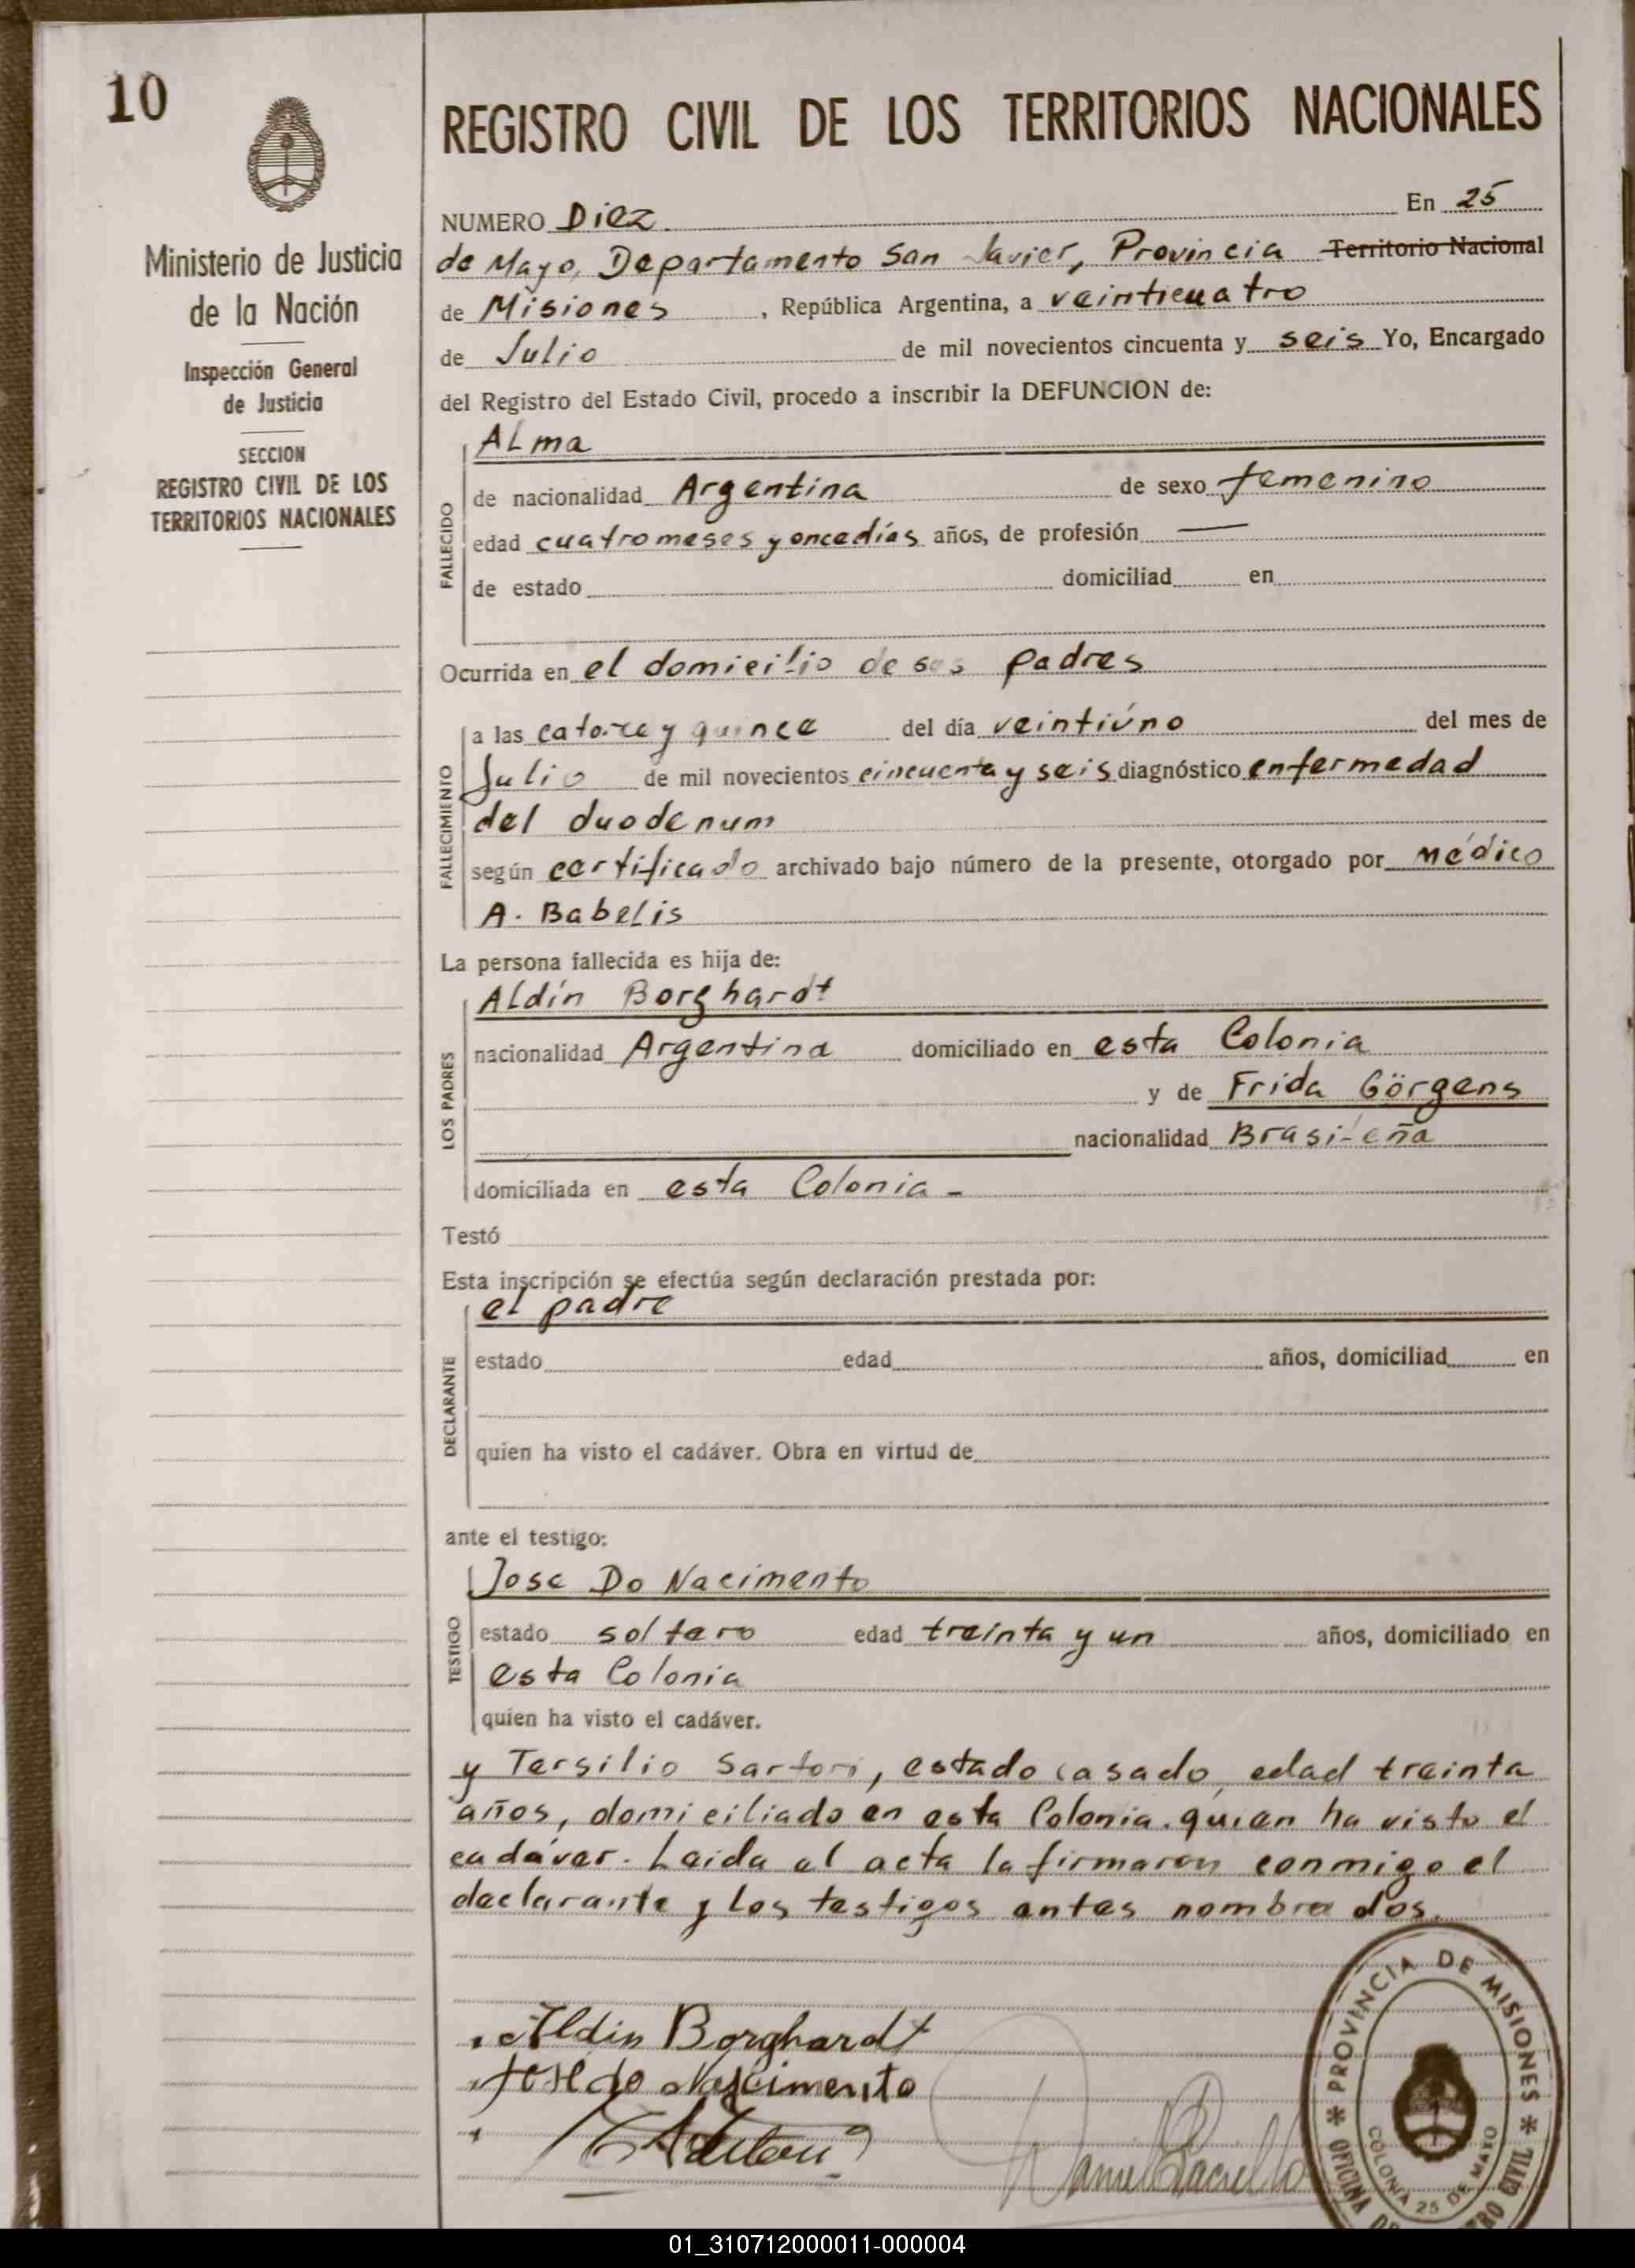 10
Ministerio de Justicia
de la Nación
Inspección General
de Justicia
SECCION
REGISTRO CIVIL DE LOS
TERRITORIOS NACIONALES
REGISTRO CIVIL DE LOS TERRITORIOS NACIONALES
NUMERO Diez. En 25
de Mayo, Departamento San Javier, Provincia Territorio Nacional
de Misiones, República Argentina, a veinticuatro
de Julio de mil novecientos cincuenta y seis Yo, Encargado
del Registro del Estado Civil, procedo a inscribir la DEFUNCION de:
FALLECIDO
ALma
de nacionalidad Argentina de sexo femenino
edad cuatro meses y once días años, de profesión —
de estado domiciliad en
Ocurrida en el domicilio de sus padres
FALLECIMIENTO
a las catorce y quince del día veintiúno del mes de
Julio de mil novecientos cincuenta y seis diagnóstico enfermedad
del duodenum
según certificado archivado bajo número de la presente, otorgado por médico
A. Babelis
La persona fallecida es hija de:
LOS PADRES
Aldín Borghardt
nacionalidad Argentina domiciliado en esta Colonia
y de Frida Görgens
nacionalidad Brasileña
domiciliada en esta Colonia -
Testó
Esta inscripción se efectúa según declaración prestada por:
DECLARANTE
el padre
estado edad años, domiciliad en
quien ha visto el cadáver. Obra en virtud de
ante el testigo:
TESTIGO
Jose Do Nacimento
estado soltero edad treinta y un años, domiciliado en
esta Colonia
quien ha visto el cadáver.
y Tersilio Sartori, estado casado, edad treinta
años, domiciliado en esta Colonia. quien ha visto el
cadáver. Leida el acta la firmaron conmigo el
declarante y los testigos antes nombrados.
Aldin Borghardt
José do Nascimento
PROVINCIA DE MISIONES
COLONIA 25 DE MAYO
OFICINA DE REGISTRO CIVIL
01_310712000011-000004